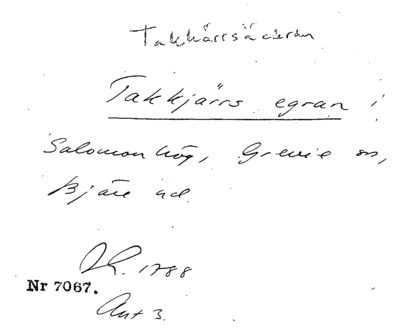 Takkärrsåkran
Takkjärrs egran i
Salomonhög, Grevie sn,
Bjäre hd
1788
Nr 7067.
Ant 3.